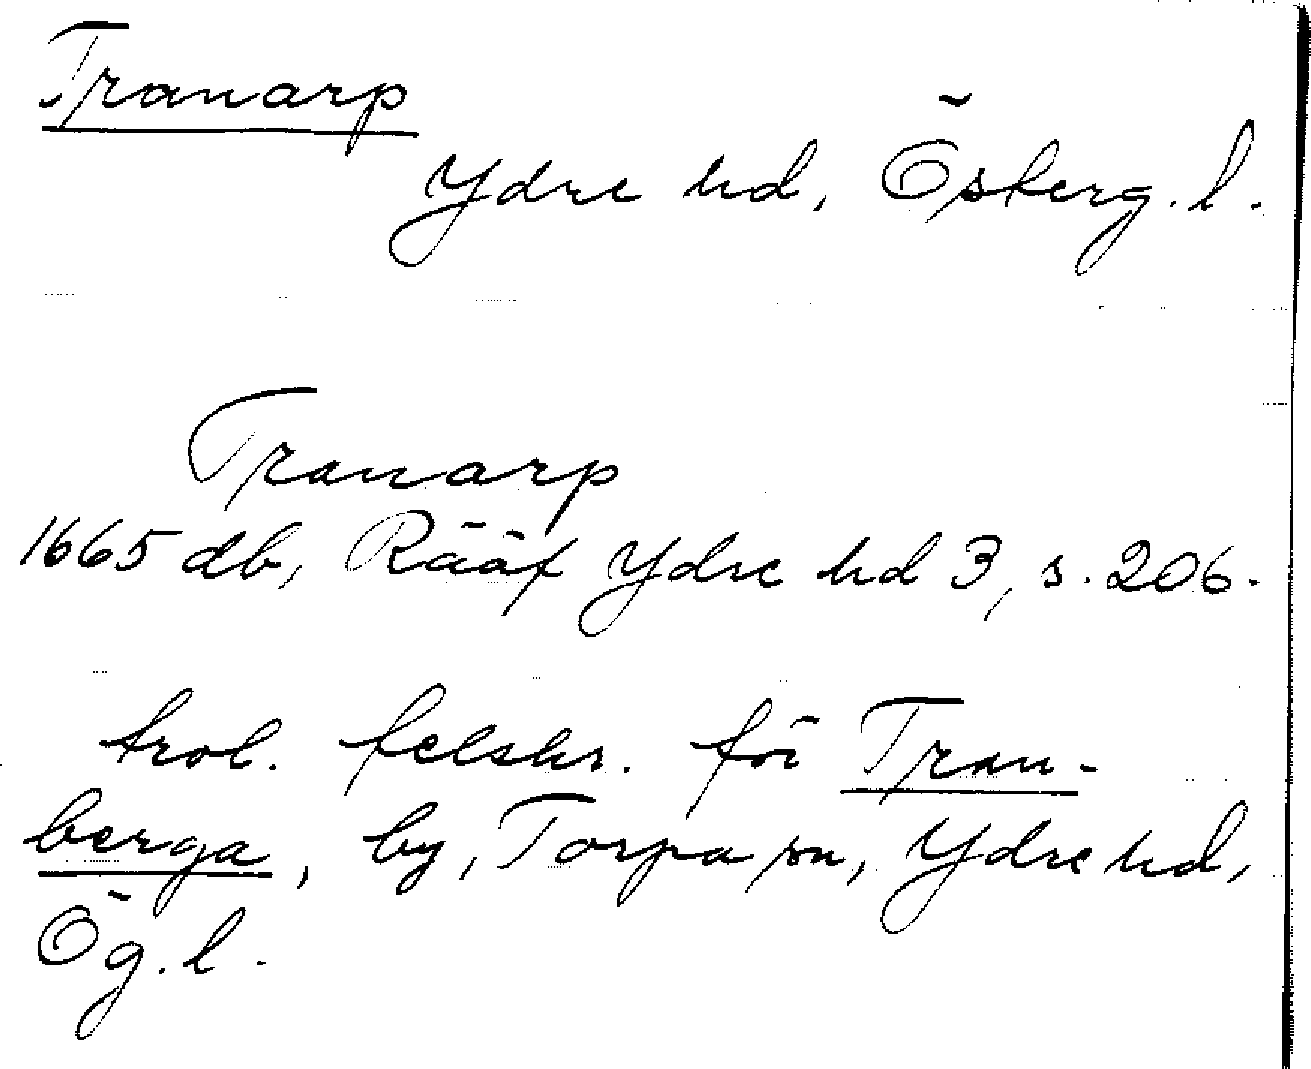 Tranarp
Ydre hd, Österg. l.
Tranarp
1665 db, Rääf Ydre hd 3, s. 206.
trol. felskr. för Tran-
berga, by, Torpa sn, Ydre hd,
Ög. l.